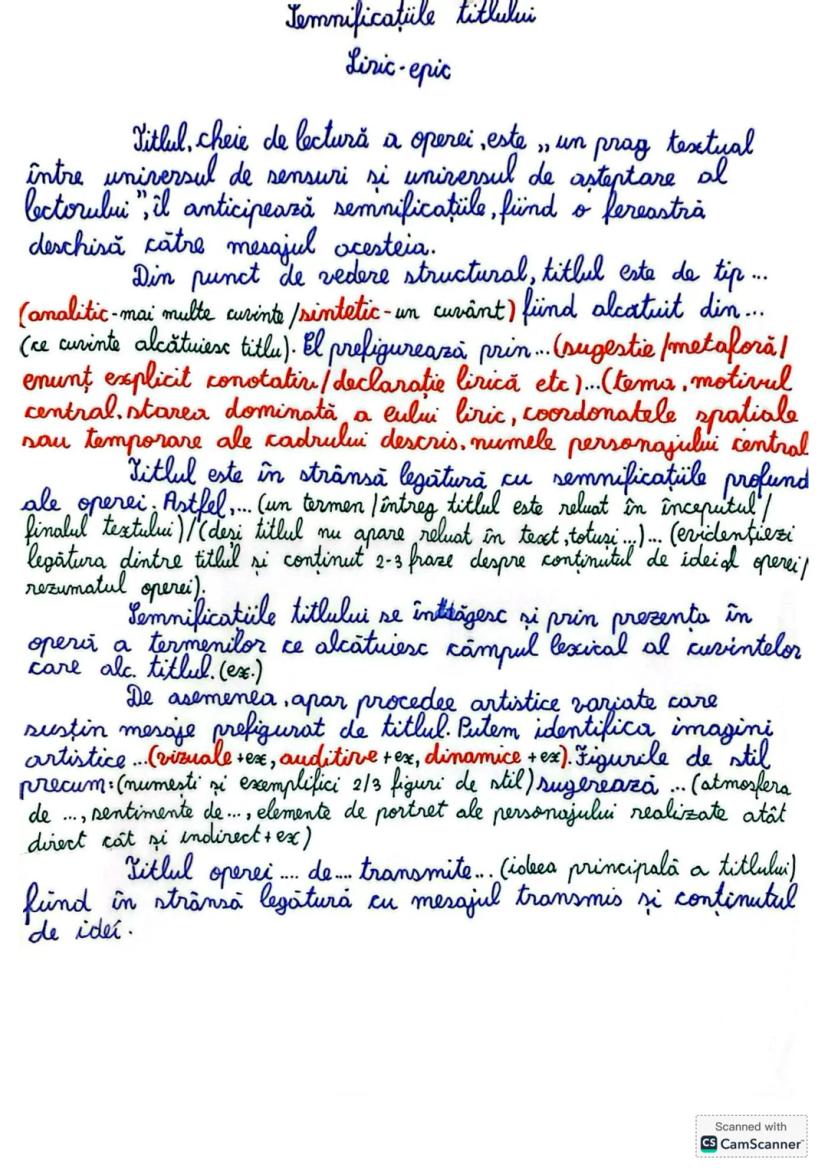 Semnificațiile titlului
Liric-epic
Titlul, cheie de lectură a operei, este „un prag textual
între universul de sensuri și universul de așteptare al
lectorului”, îl anticipează semnificațiile, fiind o fereastră
deschisă către mesajul acesteia.
Din punct de vedere structural, titlul este de tip...
(analitic-mai multe cuvinte/sintetic-un cuvânt) fiind alcătuit din...
(ce cuvinte alcătuiesc titlu). El prefigurează prin...(sugestie/metaforă/
enunț explicit conotativ/declarație lirică etc)...(tema, motivul
central, starea dominată a eului liric, coordonatele spațiale
sau temporare ale cadrului descris, numele personajului central
Titlul este în strânsă legătură cu semnificațiile profund
ale operei. Astfel,... (un termen/întreg titlul este reluat în începutul/
finalul textului)/(deși titlul nu apare reluat în text, totuși...)... (evidențiezi
legătura dintre titlul și conținut 2-3 fraze despre conținutul de ideial operei/
rezumatul operei).
Semnificațiile titlului se întrăgesc și prin prezența în
operă a termenilor ce alcătuiesc câmpul lexical al cuvintelor
care alc. titlul. (ex.)
De asemenea, apar procedee artistice variate care
susțin mesaje prefigurat de titlul. Putem identifica imagini
artistice ...(vizuale +ex, auditive +ex, dinamice +ex). Figurile de stil
precum: (numești și exemplifici 2/3 figuri de stil) sugerează ... (atmosfera
de ..., sentimente de..., elemente de portret ale personajului realizate atât
direct cât și indirect + ex)
Titlul operei .... de.... transmite... (ideea principală a titlului)
fiind în strânsă legătură cu mesajul transmis și conținutul
de idei.
Scanned with
CS CamScanner